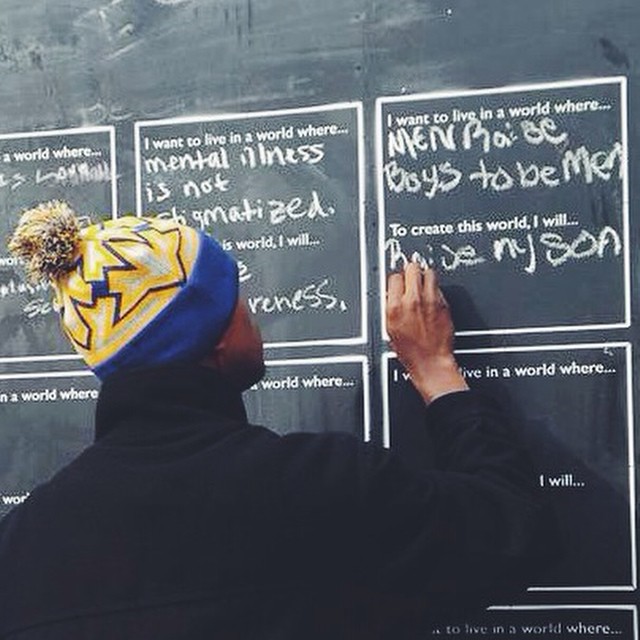 a world where...
I want to live in a world where...
mental illness
is not
stigmatized.
is world, I will...
reness.
I want to live in a world where...
MEN Raise
Boys to be Men
To create this world, I will...
Raise my son
n a world where...
world where...
I w ive in a world where...
I will...
to live in a world where...